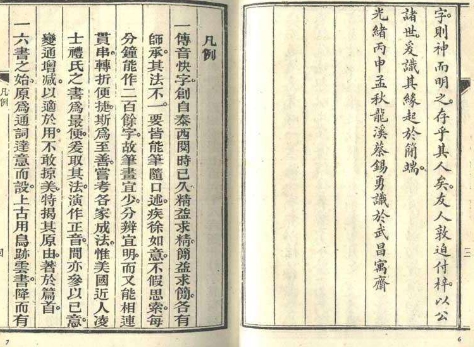 字則神而明之。存乎其人矣。友人敦迫付梓以公
諸世。爰識其緣起於簡端。
光緒丙申孟秋龍溪蔡錫勇識於武昌寓齋
三
6
凡例
一傳音快字。創自泰西。閱時已久。精益求精。簡益求簡。各有
師承。其法不一。要皆能筆隨口述。疾徐如意。不假思索。每
分鐘能作二百餘字。故筆畫宜少。分辨宜明。而又能相連
貫串。轉折便捷。斯爲至善。嘗考各家成法。惟美國近人凌
士禮氏之書爲最便。爰取其法。演作正音。間亦參以己意。
變通增减。以適於用。不敢掠美。特揭其原由。著於篇首。
一六書之始。原爲通詞達意而設。上古用鳥跡雲書。降而有
凡例
7